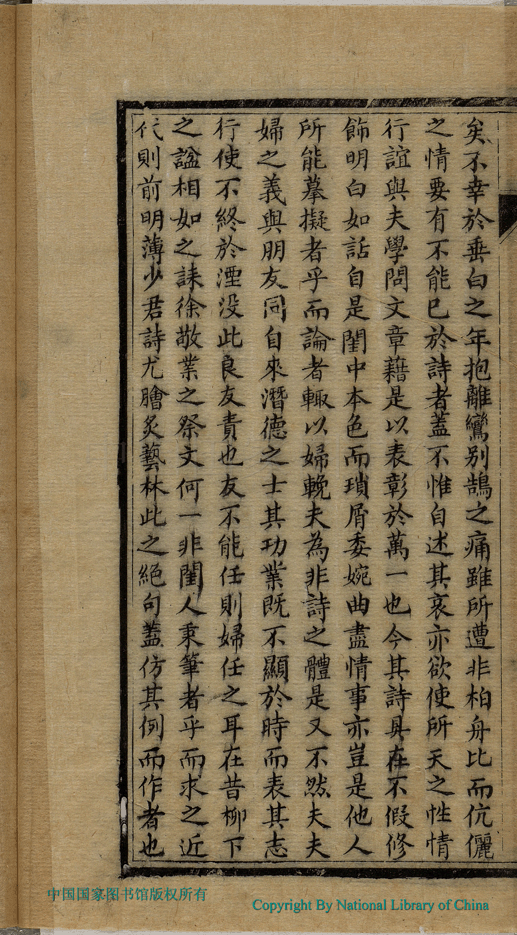 矣不幸於垂白之年抱離鸞別鵠之痛雖所遭非柏舟比而伉儷
之情要有不能已於詩者蓋不惟自述其哀亦欲使所天之性情
行誼與夫學問文章藉是以表彰於萬一也今其詩具在不假修
飾明白如話自是閨中本色而瑣屑委婉曲盡情事亦豈是他人
所能摹擬者乎而論者輙以婦輓夫為非詩之體是又不然夫夫
婦之義與朋友同自來潛德之士其功業既不顯於時而表其志
行使不終於湮没此良友責也友不能任則婦任之耳在昔柳下
之諡相如之誄徐敬業之祭文何一非閨人秉筆者乎而求之近
代則前明薄少君詩尤膾炙藝林此之絕句蓋仿其例而作者也
中国国家图书馆版权所有
Copyright By National Library of China